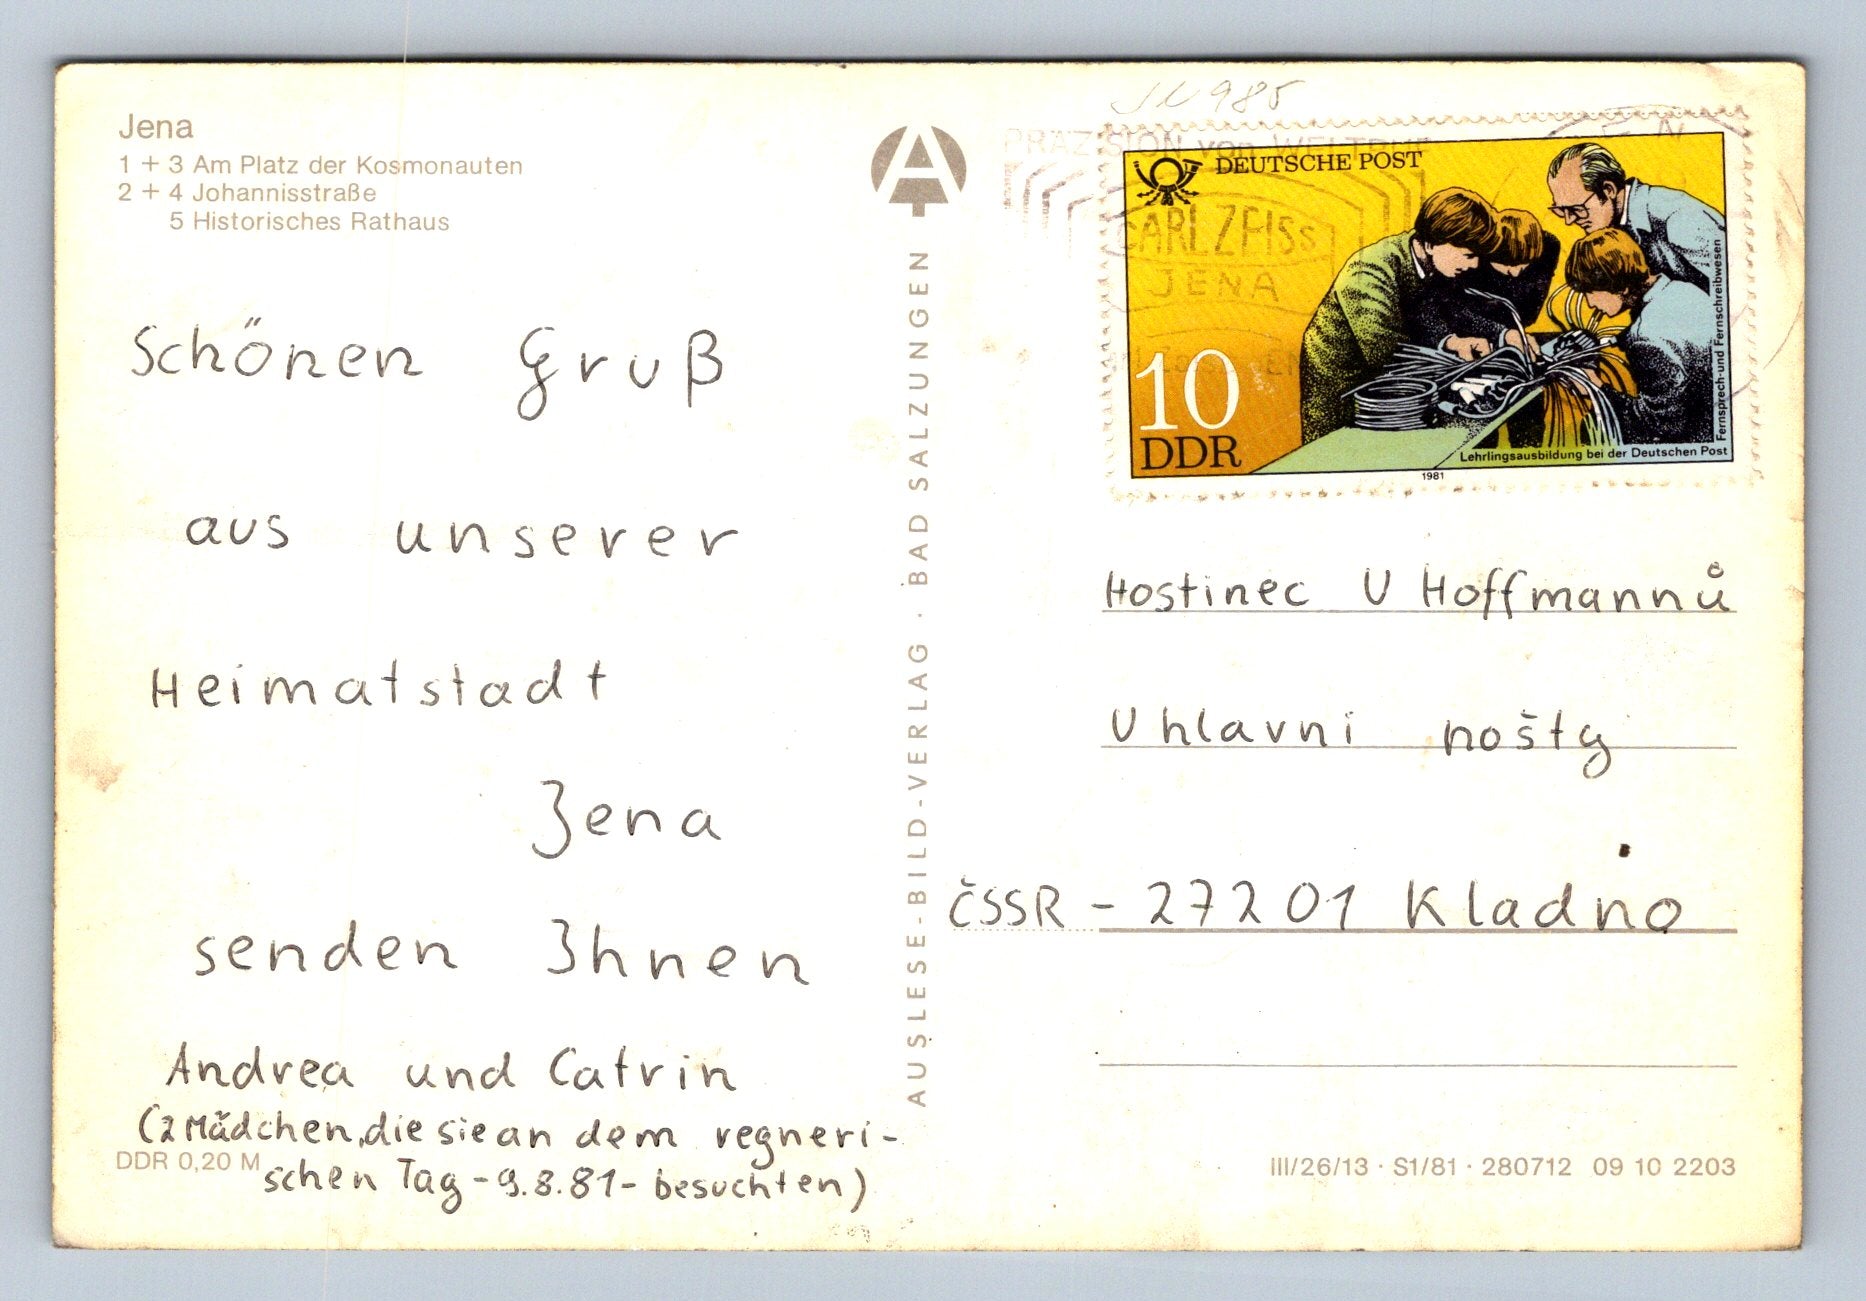 Jena
1 + 3 Am Platz der Kosmonauten
2 + 4 Johannisstraße
5 Historisches Rathaus
Schönen Gruß
aus unserer
Heimatstadt
Jena
senden Ihnen
Andrea und Catrin
(2 Mädchen, die sie an dem regneri-
schen Tag - 9.8.81 - besuchten)
DDR 0,20 M
AUSLESE-BILD-VERLAG · BAD SALZUNGEN
985
PRÄZISION von WELTRUF
CARL ZEISS
JENA
DEUTSCHE POST
10
DDR
Fernsprech-und Fernschreibwesen
Lehrlingsausbildung bei der Deutschen Post
1981
Hostinec U Hoffmannů
U hlavni nošty
ČSSR - 27201 Kladno
III/26/13 · S1/81 · 280712 09 10 2203